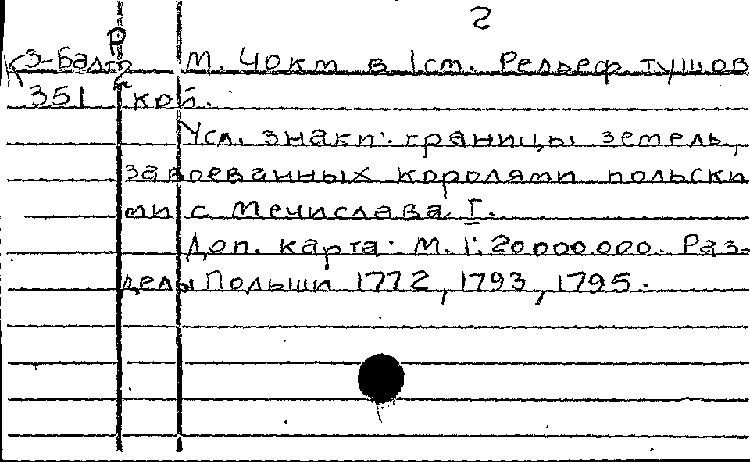 2
Р
К З-Балт
М. 40км в 1см. Рельеф тушов
351
коб.
Усл. знаки: границы земель,
завоеванных королями польски
ми с Мечислава I.
Доп. карта: М. 1:20000.000. Раз-
делы Польши 1772, 1793, 1795.